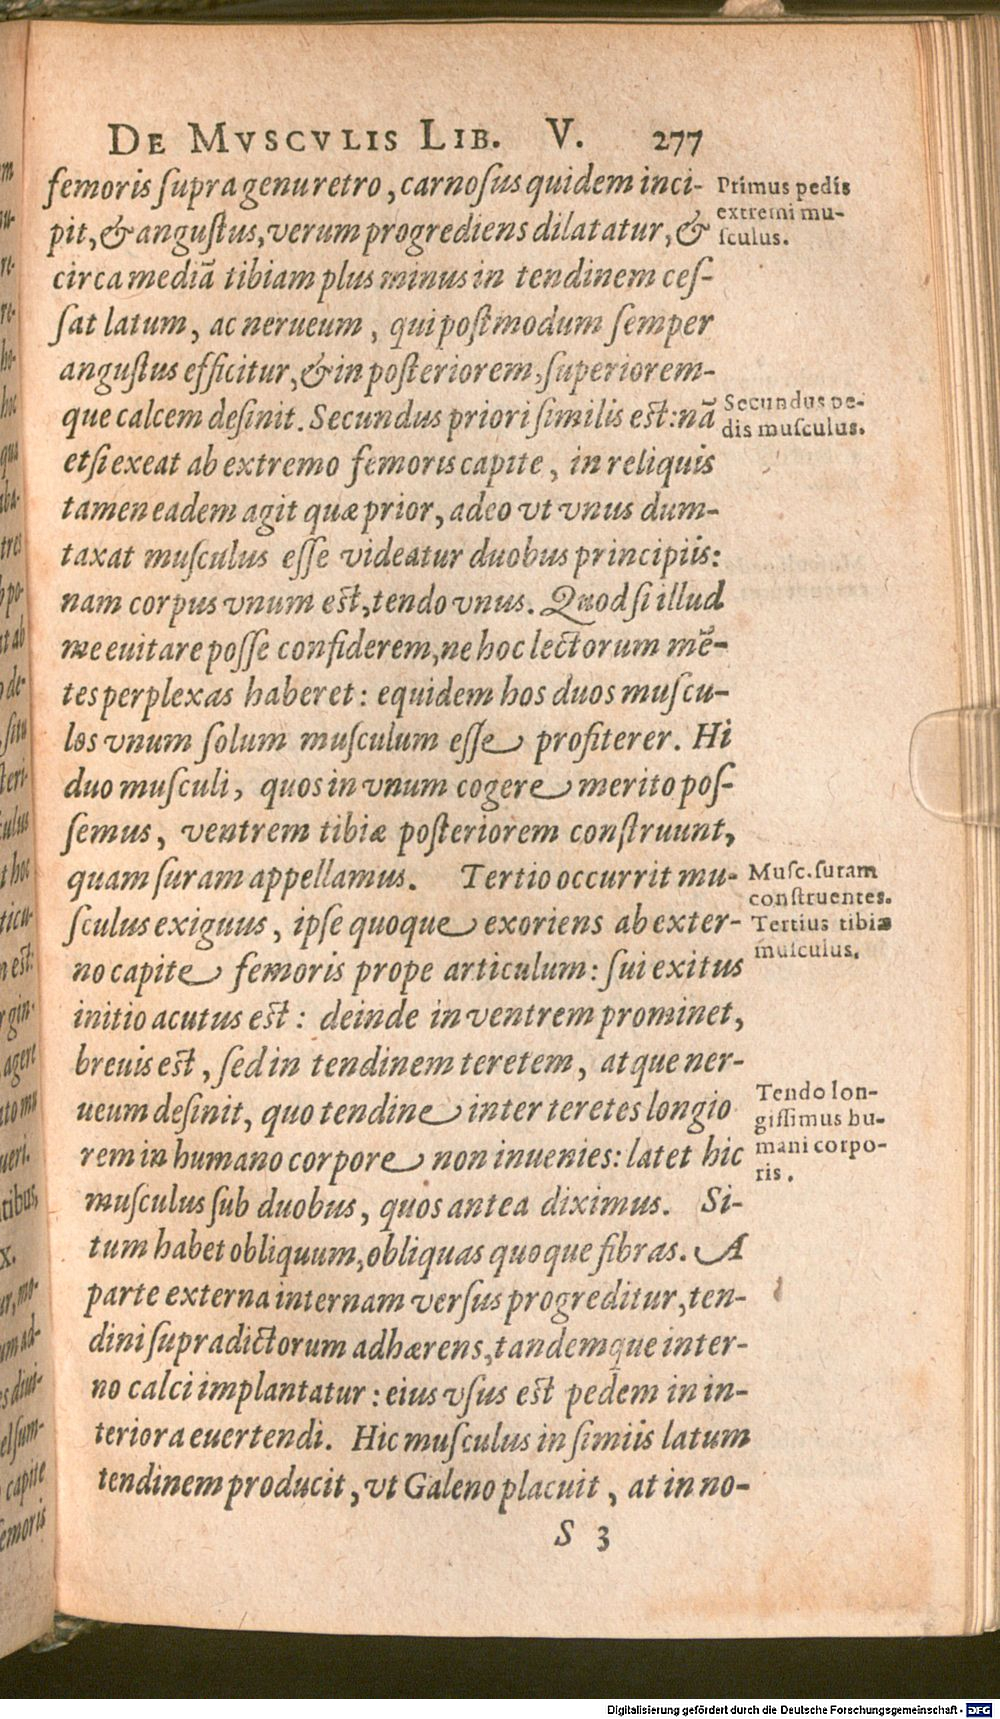 DE MVSCVLIS LIB. V. 277
femoris supra genu retro, carnosus quidem inci-
pit, & angustus, verum progrediens dilatatur, &
circa mediā tibiam plus minus in tendinem ces-
sat latum, ac nerueum, qui postmodum semper
angustus efficitur, & in posteriorem, superiorem-
que calcem desinit. Secundus priori similis est: nā
etsi exeat ab extremo femoris capite, in reliquis
tamen eadem agit quæ prior, adeo vt vnus dum-
taxat musculus esse videatur duobus principiis:
nam corpus vnum est, tendo vnus. Quod si illud
me euitare posse confiderem, ne hoc lectorum mē-
tes perplexas haberet: equidem hos duos muscu-
los vnum solum musculum esse profiterer. Hi
duo musculi, quos in vnum cogere merito pos-
semus, ventrem tibiæ posteriorem construunt,
quam suram appellamus. Tertio occurrit mu-
sculus exiguus, ipse quoque exoriens ab exter-
no capite femoris prope articulum: sui exitus
initio acutus est: deinde in ventrem prominet,
breuis est, sed in tendinem teretem, atque ner-
ueum desinit, quo tendine inter teretes longio
rem in humano corpore non inuenies: latet hic
musculus sub duobus, quos antea diximus. Si-
tum habet obliquum, obliquas quoque fibras. A
parte externa internam versus progreditur, ten-
dini supradictorum adhærens, tandemque inter-
no calci implantatur: eius vsus est pedem in in-
teriora euertendi. Hic musculus in simiis latum
tendinem producit, vt Galeno placuit, at in no-
S 3
Primus pedis
extremi mu-
sculus.
Secundus pe-
dis musculus.
Musc. suram
construentes.
Tertius tibiæ
musculus.
Tendo lon-
gissimus hu-
mani corpo-
ris.
Digitalisierung gefördert durch die Deutsche Forschungsgemeinschaft - DFG